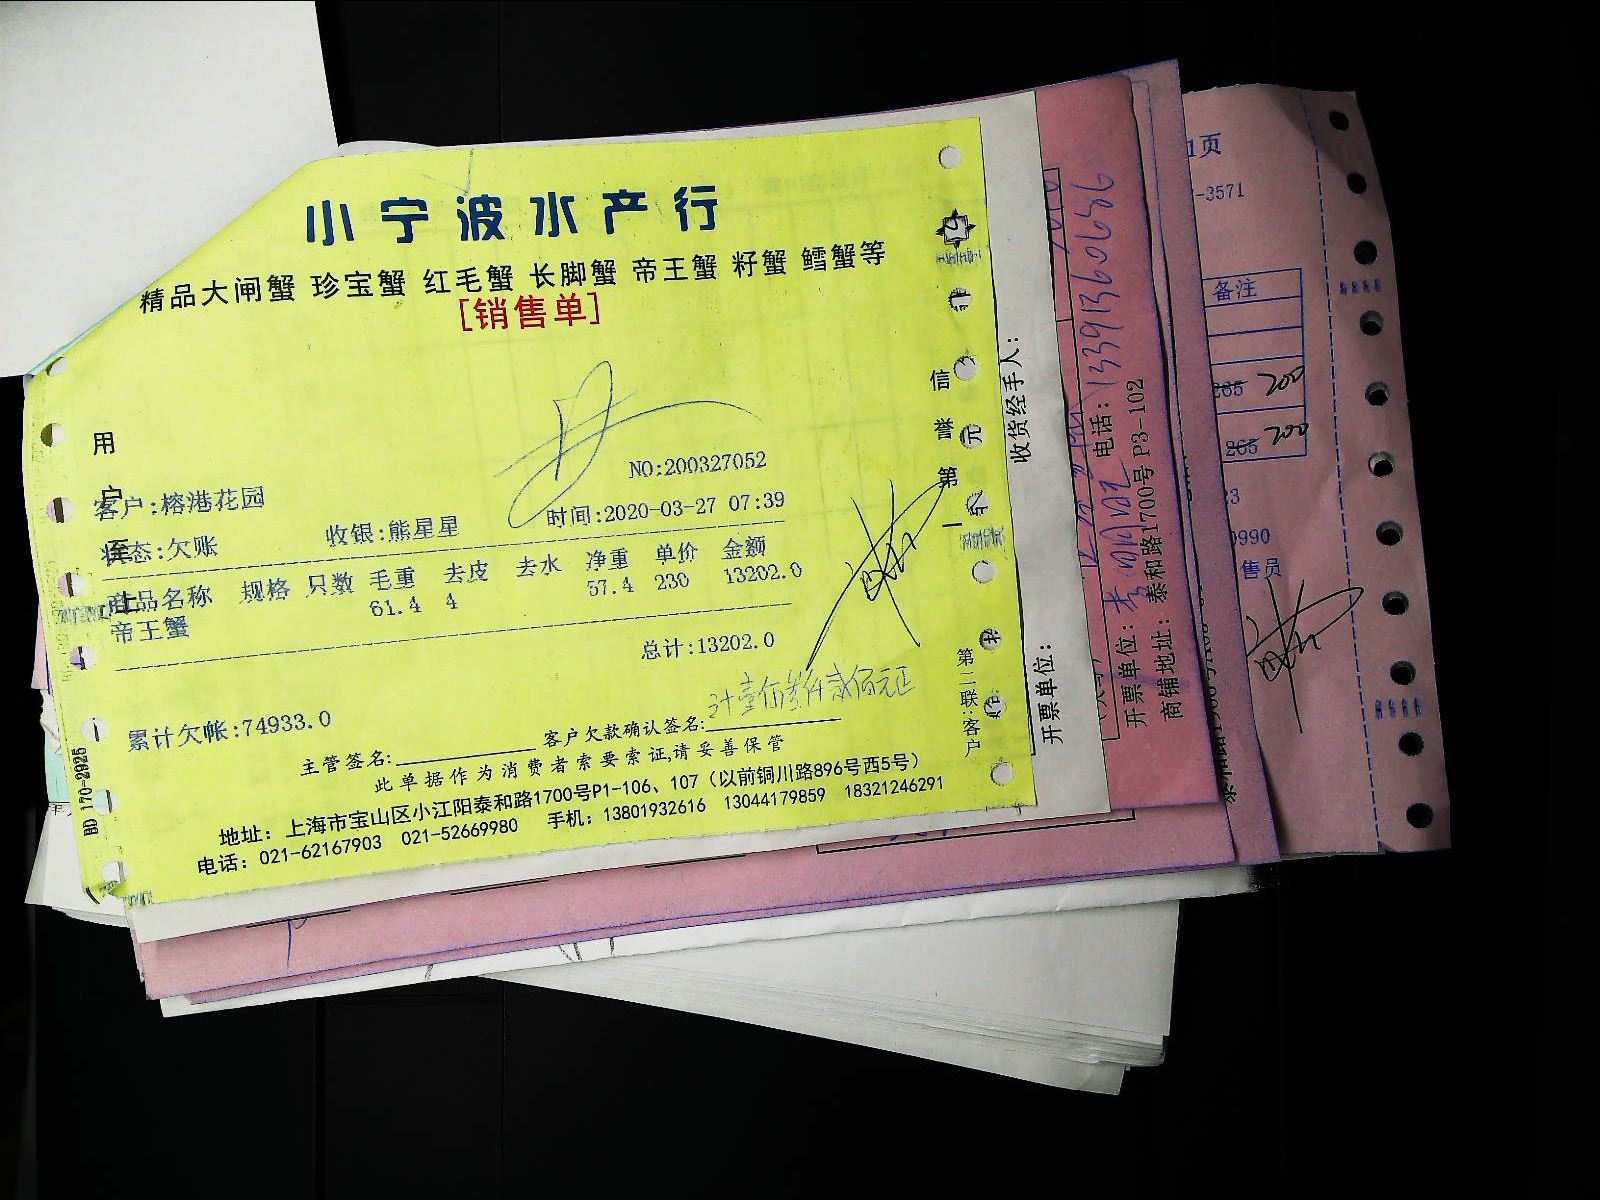 小宁波水产行
精品大闸蟹 珍宝蟹 红毛蟹 长脚蟹 帝王蟹 籽蟹 鳕蟹等
[销售单]
用户至上
信誉第一
NO:200327052
客户:榕港花园
时间:2020-03-27 07:39
状态:欠账 收银:熊星星
商品名称 规格 只数 毛重 去皮 去水 净重 单价 金额
帝王蟹 61.4 4 57.4 230 13202.0
总计:13202.0
累计欠帐:74933.0
主管签名: 客户欠款确认签名:
此单据作为消费者索要索证,请妥善保管
地址：上海市宝山区小江阳泰和路1700号P1-106、107（以前铜川路896号西5号）
电话：021-62167903 021-52669980 手机：13801932616 13044179859 18321246291
BD 170-2925
第二联:客户
收货经手人：
开票单位：
电话：13391360636
开票单位：
商铺地址：泰和路1700号 P3-102
1页
-3571
备注
265 200
265 200
23
0990
售员